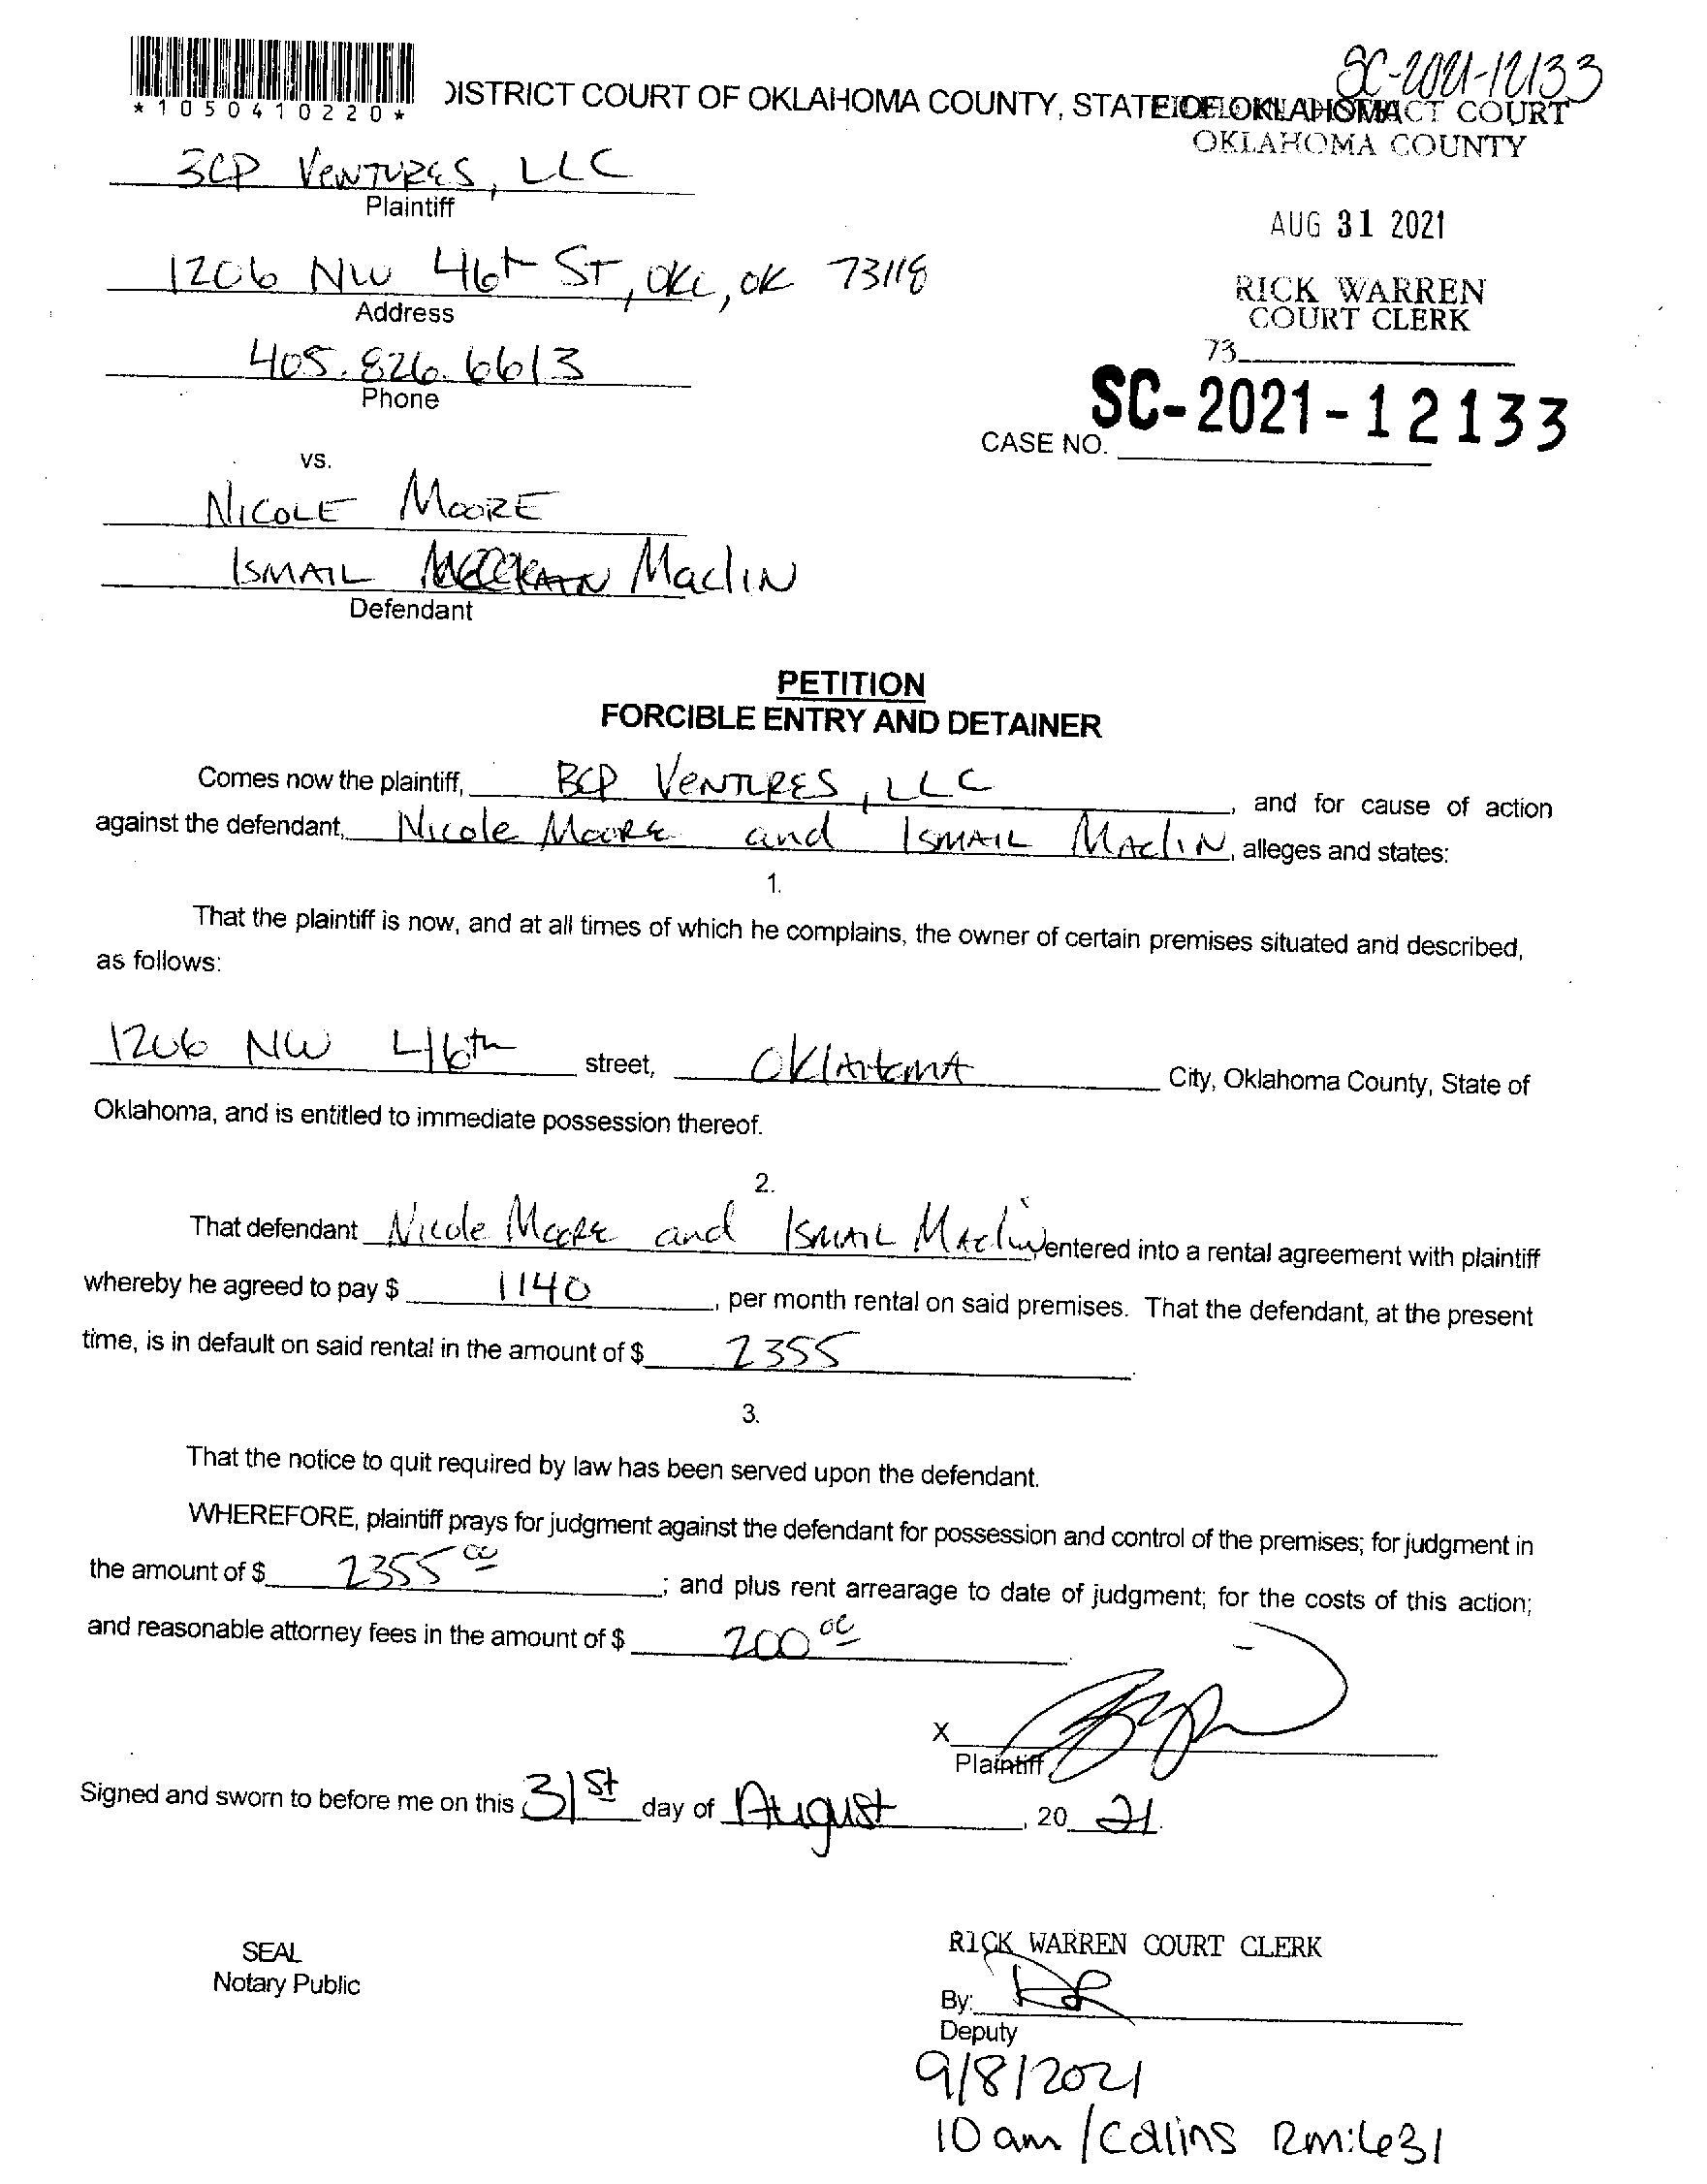 SC-2021-12133
*1050410220*
DISTRICT COURT OF OKLAHOMA COUNTY, STATE OF OKLAHOMA
DISTRICT COURT
OKLAHOMA COUNTY
3CP VENTURES, LLC
Plaintiff
AUG 31 2021
1206 NW 46th ST, OKC, OK 73118
Address
RICK WARREN
COURT CLERK
405.826.6613
Phone
73
SC-2021-12133
CASE NO.
vs.
NICOLE MOORE
ISMAIL MaclIN
Defendant
PETITION
FORCIBLE ENTRY AND DETAINER
Comes now the plaintiff, BCP VENTURES, LLC, and for cause of action
against the defendant, Nicole Moore and ISMAIL MAclIN, alleges and states:
1.
That the plaintiff is now, and at all times of which he complains, the owner of certain premises situated and described,
as follows:
1206 NW 46th street, OKlAHomA City, Oklahoma County, State of
Oklahoma, and is entitled to immediate possession thereof.
2.
That defendant Nicole Moore and ISMAIL MAclin entered into a rental agreement with plaintiff
whereby he agreed to pay $ 1140, per month rental on said premises. That the defendant, at the present
time, is in default on said rental in the amount of $ 2355.
3.
That the notice to quit required by law has been served upon the defendant.
WHEREFORE, plaintiff prays for judgment against the defendant for possession and control of the premises; for judgment in
the amount of $ 2355 00; and plus rent arrearage to date of judgment; for the costs of this action;
and reasonable attorney fees in the amount of $ 200 00.
X
Plaintiff
Signed and sworn to before me on this 31st day of August, 20 21.
SEAL
Notary Public
RICK WARREN COURT CLERK
By:
Deputy
9/8/2021
10 am / Collins Rm: 631